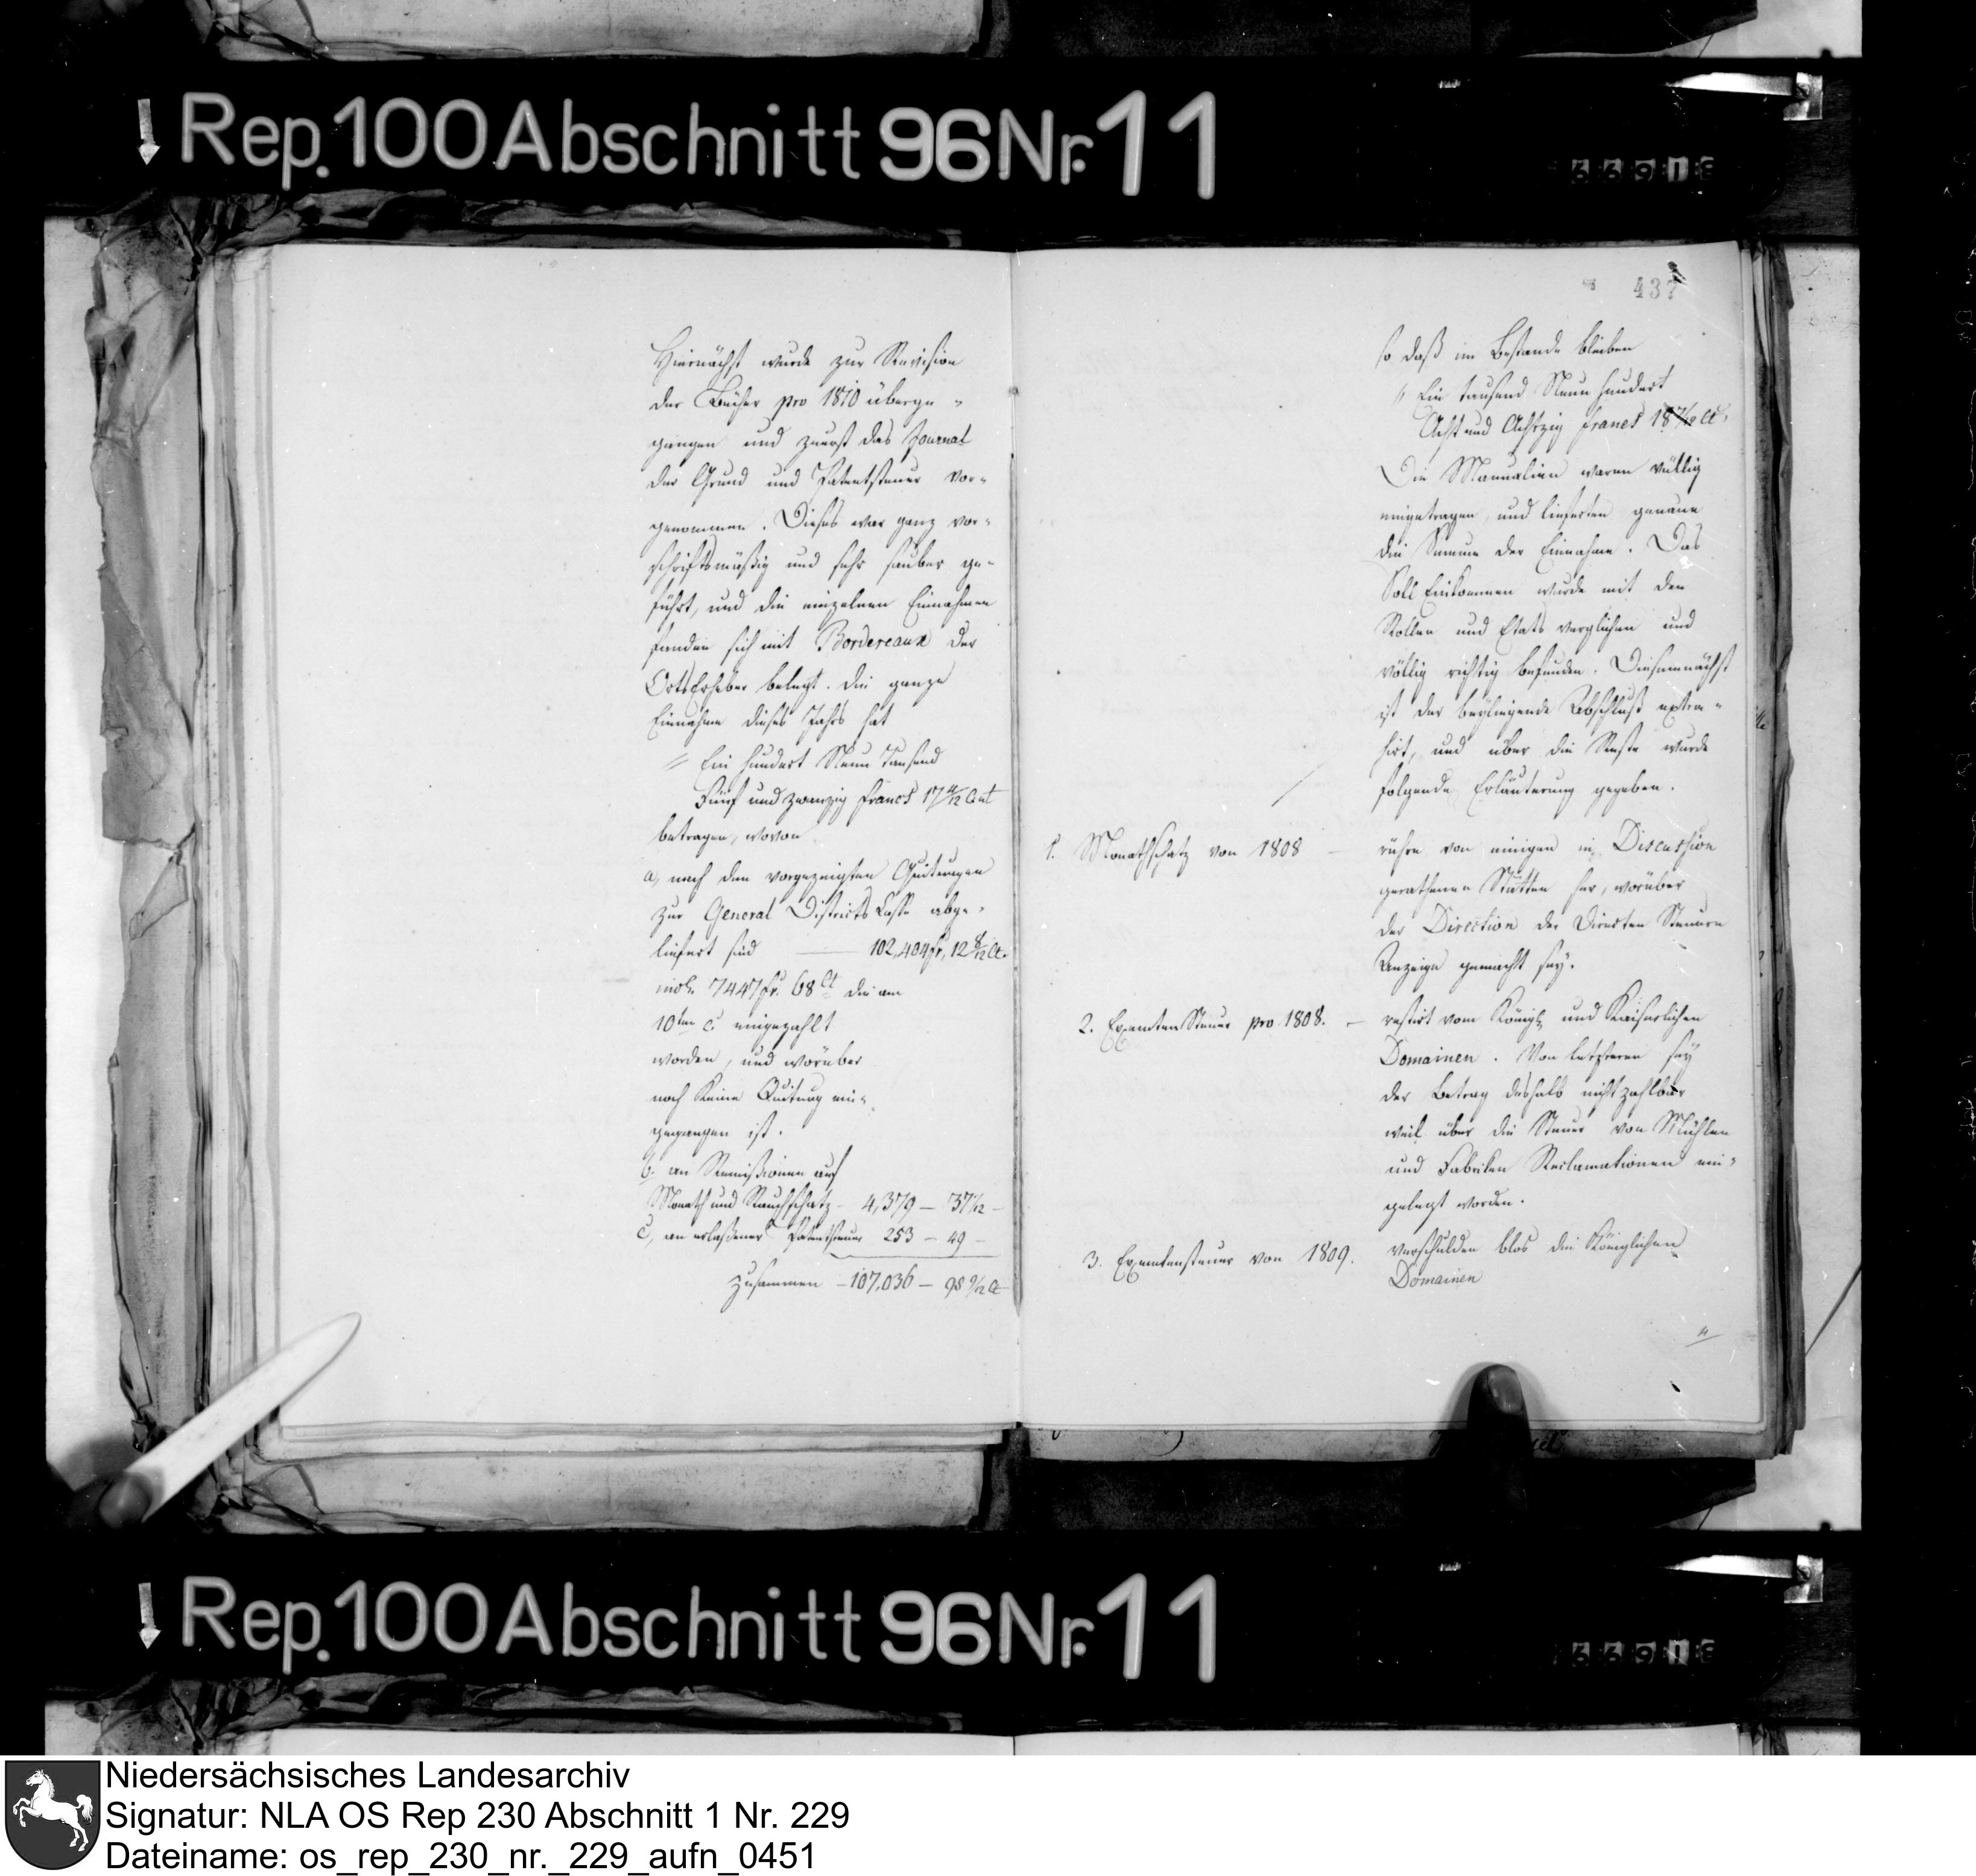 Rep. 100 Abschnitt 96 Nr. 11
Hiernächst wurde zur Revision
der Bücher pro 1810 überge-
gangen und zuerst das Journal
der Grund und Patentsteuer vor-
genommen. Dieses war ganz vor-
schriftsmäßig und sehr sauber ge-
führt, und die einzelnen Einnahmen
fanden sich mit Bordereaux der
OrtsErheber belegt. Die ganze
Einnahme dieses Jahrs hat
Ein hundert Neun Tausend
Fünf und zwanzig francs 17 4/12 Cent
betragen, wovon
a, nach den vorgezeigten Quitungen
zur General Districts Casse abge-
liefert sind 102,404 fr. 12 8/12 Ct.
incl. 7447 fr. 68 Ct die am
10ten c. eingezahlt
worden, und worüber
noch keine Quitung ein-
gegangen ist.
b. an Remissionen auf
Monath und Rauchschatz - 4,379 - 37 1/12 -
c, an erlaßener Patentsteuer 253 - 49 -
zusammen - 107,036 - 98 9/12 Ct
437
so daß im Bestande bleiben
Ein tausend Neun hundert
Acht und Achtzig francs 18 7/12 Ct.
Die Manualien waren völlig
eingetragen, und lieferten genaue
die Summe der Einnahme. Das
Soll Einkommen wurde mit den
Rollen und Etats verglichen und
völlig richtig befunden. Diesemnächst
ist der beyliegende Abschluß extra-
hirt, und über die Reste wurde
folgende Erläuterung gegeben.
1. Monathschatz von 1808 - rühre von einigen in Discussion
gerathenen Stätten her, worüber
der Direction der Directen Steuern
Anzeige gemacht sey.
2. Exemten Steuer pro 1808. - restirt vom Königl. und Kaiserlichen
Domainen. Von letzteren sey
der Betrag deshalb nicht zahlbar
weil über die Steuer von Mühlen
und Fabriken Reclamationen ein-
gelegt worden.
3. Exemtensteuer von 1809. verschulden blos die Königlichen
Domainen
Rep. 100 Abschnitt 96 Nr. 11
Niedersächsisches Landesarchiv
Signatur: NLA OS Rep 230 Abschnitt 1 Nr. 229
Dateiname: os_rep_230_nr._229_aufn_0451